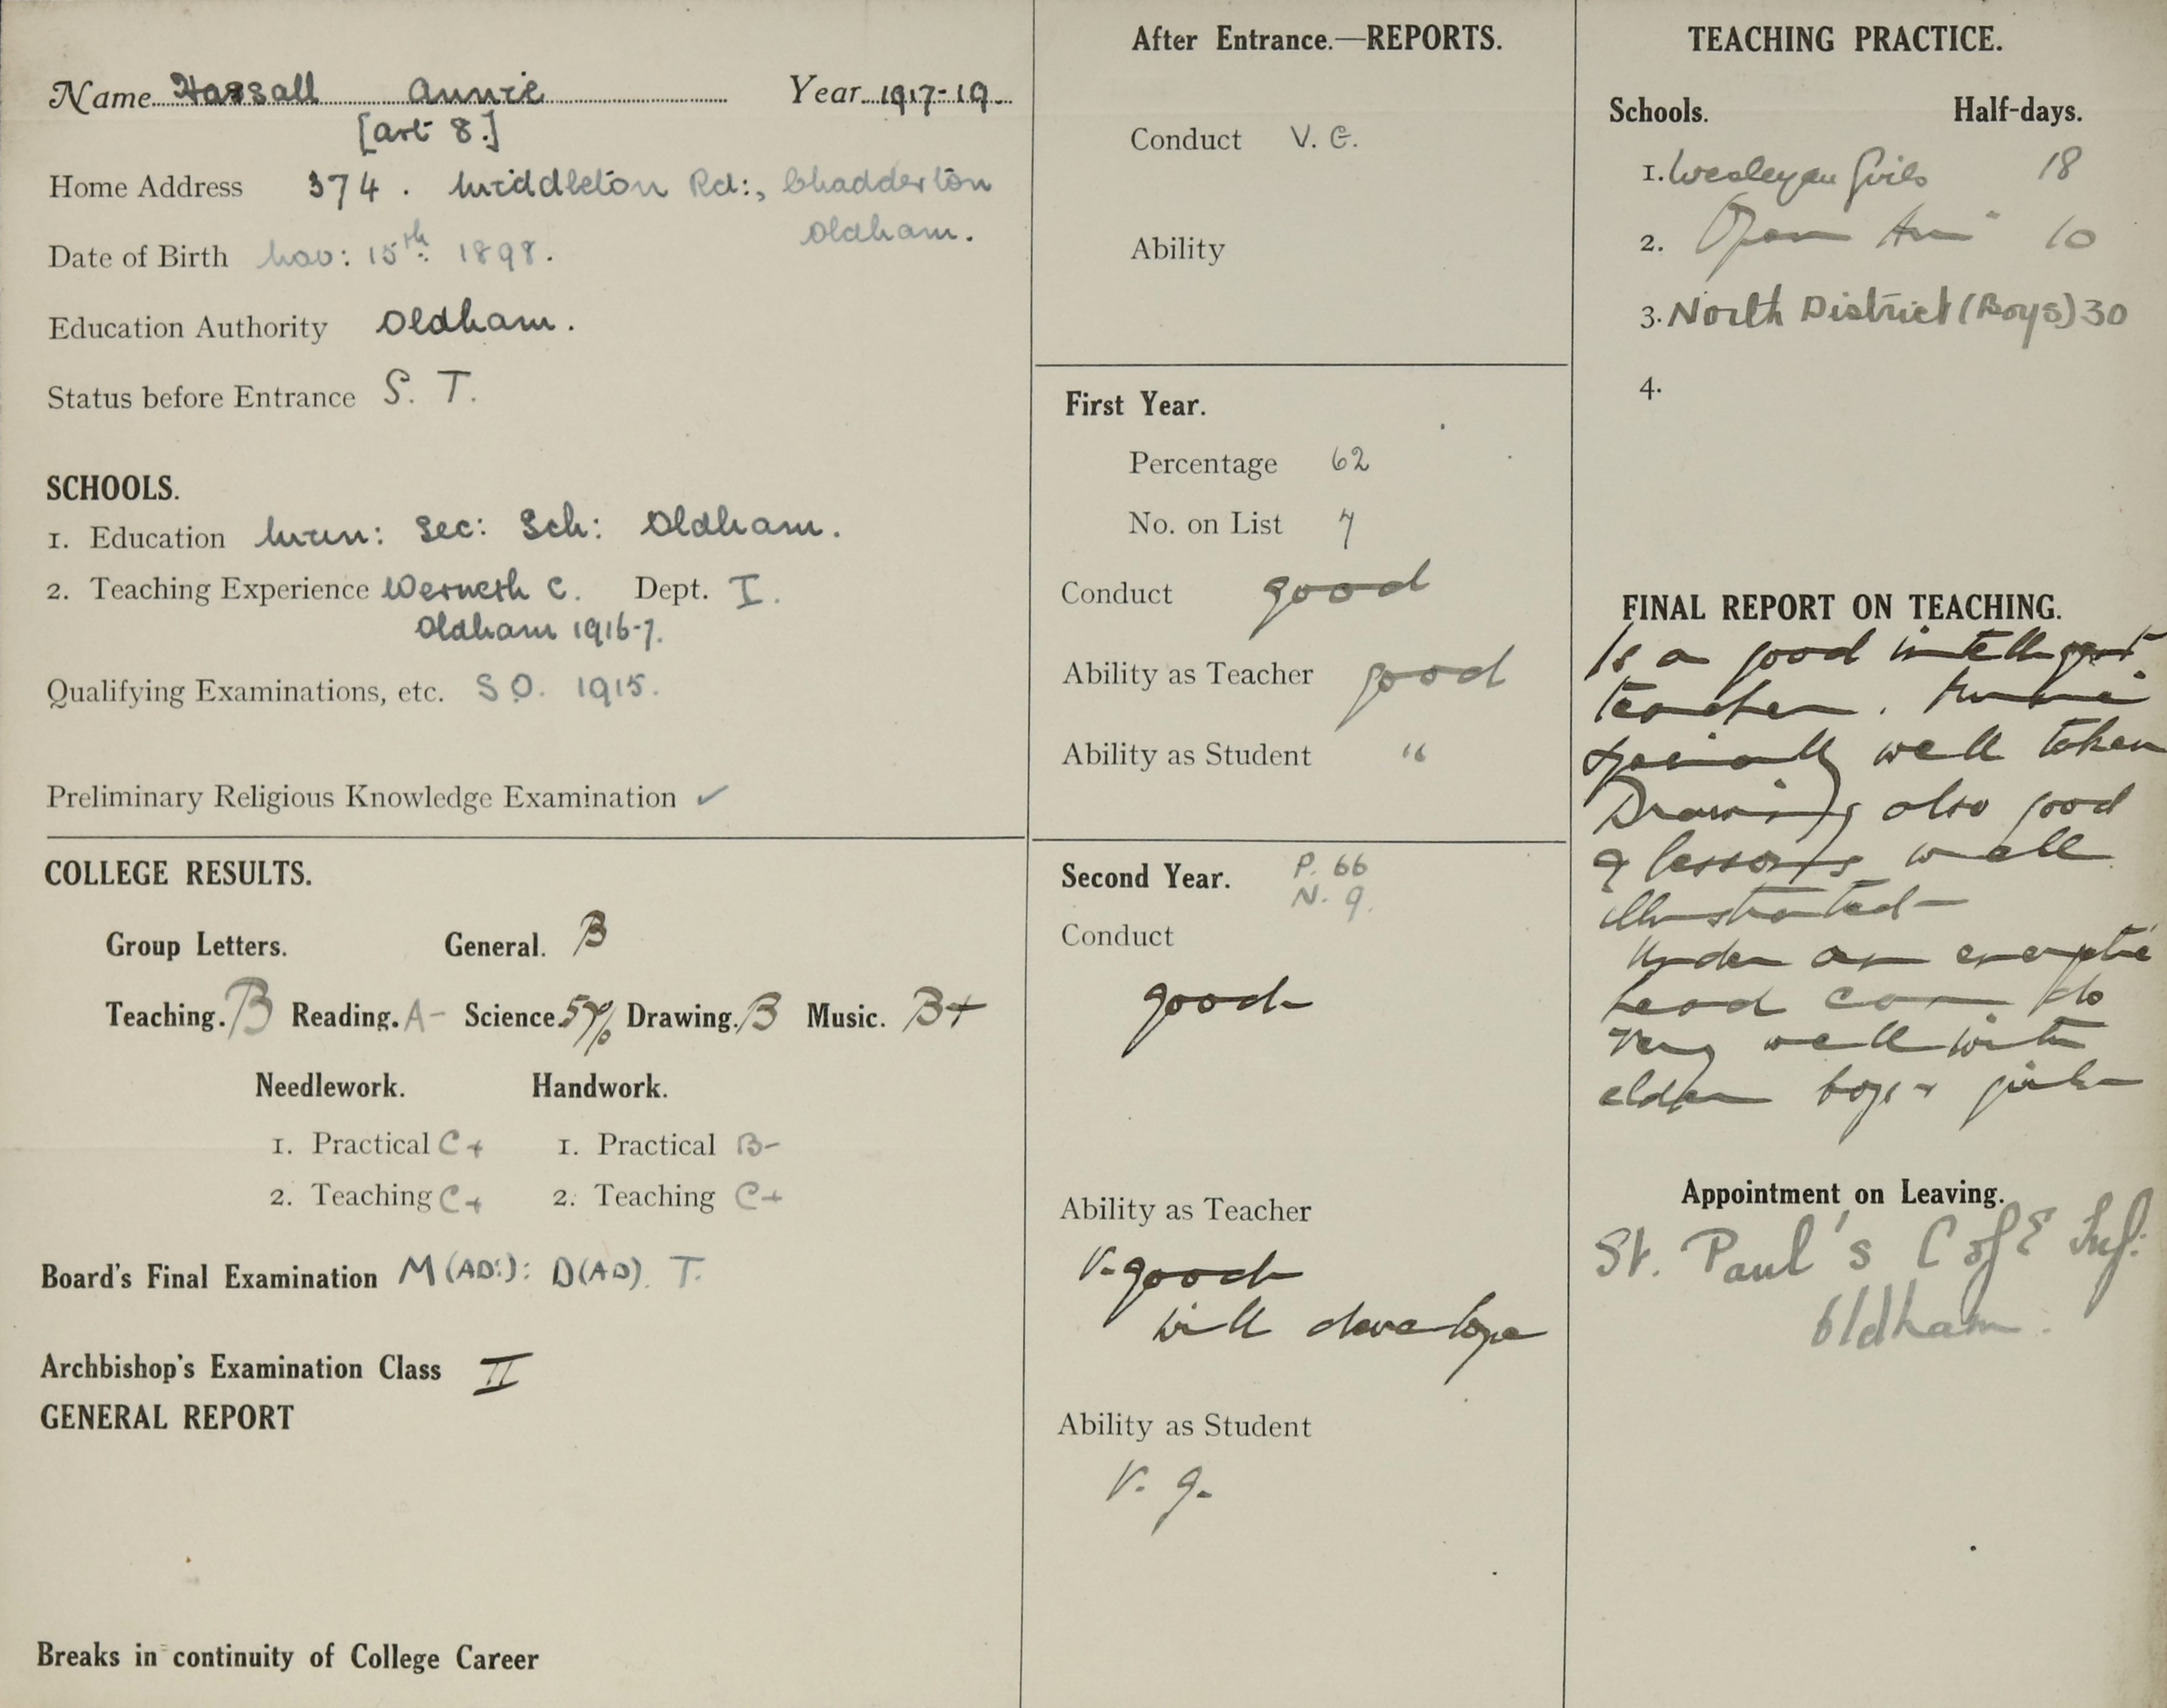 Name Hassall Annie Year 1917-19
[art 8.]
Home Address 374. Middleton Rd:, Chadderton
Oldham.
Date of Birth Nov: 15th: 1898.
Education Authority Oldham.
Status before Entrance S. T.
SCHOOLS.
1. Education Mun: Sec: Sch: Oldham.
2. Teaching Experience Werneth C. Dept. I.
Oldham 1916-7.
Qualifying Examinations, etc. S.O. 1915.
Preliminary Religious Knowledge Examination ✓
COLLEGE RESULTS.
Group Letters. General. B
Teaching. B Reading. A- Science Drawing. B Music. B+
Needlework. Handwork.
1. Practical C+ 1. Practical B-
2. Teaching C+ 2. Teaching C+
Board's Final Examination M(AD:): D(AD). T.
Archbishop's Examination Class II
GENERAL REPORT
Breaks in continuity of College Career
After Entrance.—REPORTS.
Conduct V. G.
Ability
First Year.
Percentage 62
No. on List 7
Conduct good
Ability as Teacher good
Ability as Student "
Second Year. P. 66
N. 9.
Conduct
good
Ability as Teacher
V. good
will develope
Ability as Student
V. g.
TEACHING PRACTICE.
Schools. Half-days.
1. Wesleyan Girls 18
2. Open Air 10
3. North District (Boys) 30
4.
FINAL REPORT ON TEACHING.
Is a good intelligent
teacher.
specially well taken
Drawing also good
& lessons well
illustrated
Under an
head can do
very well with
elder boys & girls
Appointment on Leaving.
St. Paul's C of E Inf:
Oldham.